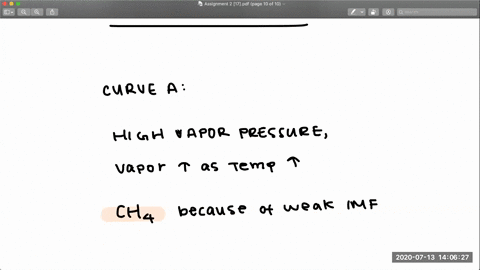 Assignment 2 [17].pdf (page 10 of 10)
CURVE A:
HIGH VAPOR PRESSURE,
vapor ↑ as Temp ↑
CH4 because of weak IMF
2020-07-13 14:06:27